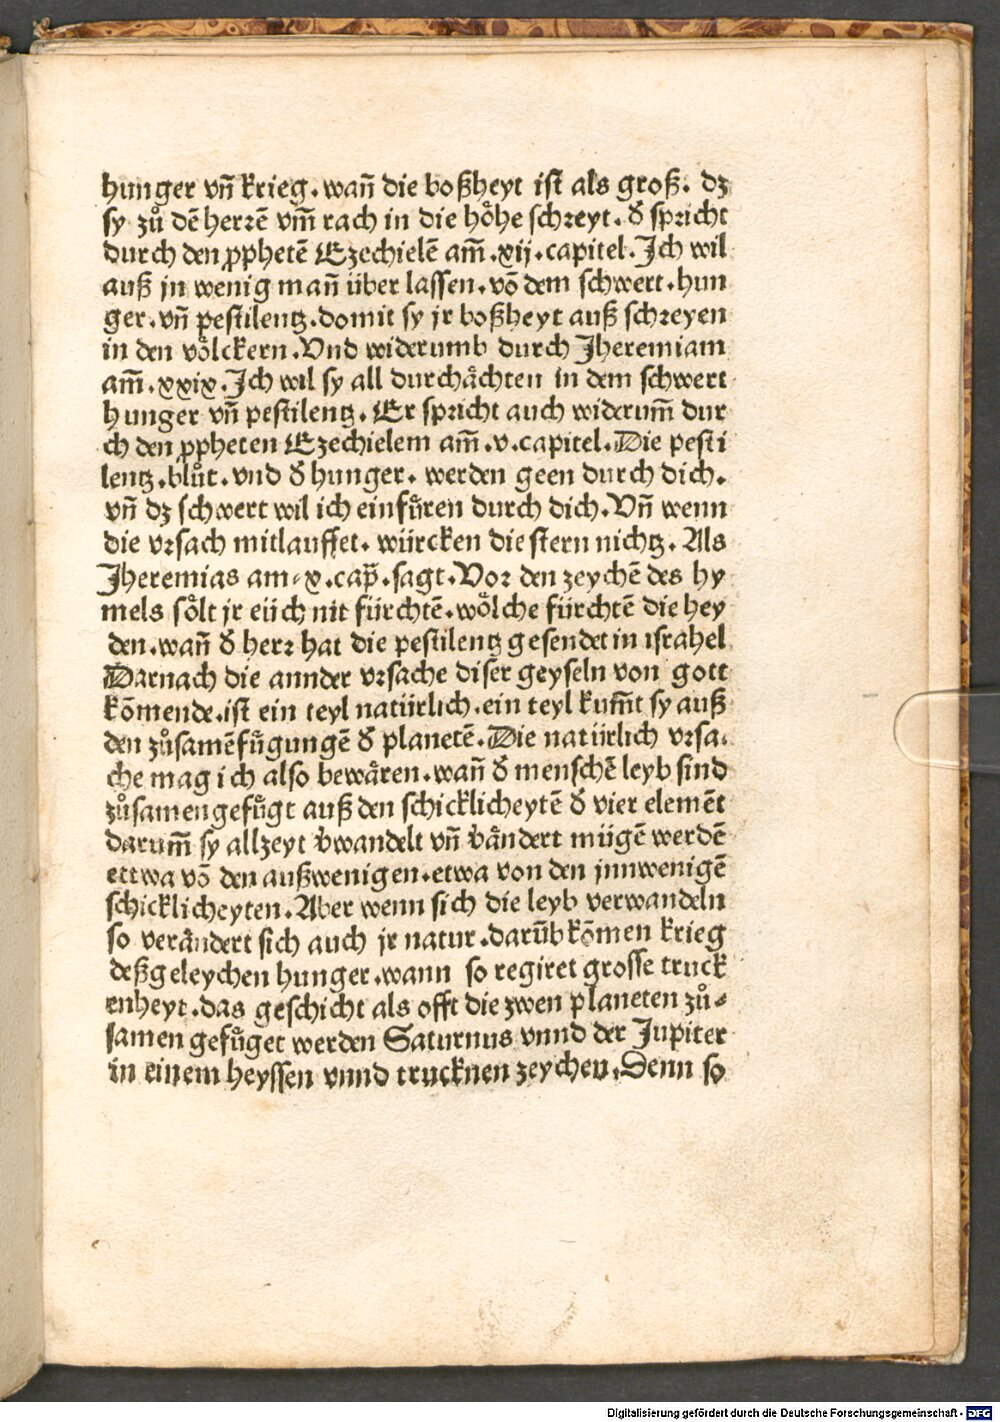 hunger vn̄ krieg. wan̄ die boßheyt ist als groß. dz
sy zů dē herrē vm̄ rach in die hoͤhe schreyt. d' spricht
durch den ꝓphetē Ezechielē am̄. xij. capitel. Ich wil
auß jn wenig man̄ über lassen. vō dem schwert. hun
ger. vn̄ pestilentz. domit sy jr boßheyt auß schreyen
in den voͤlckern. Vnd widerumb durch Jheremiam
am̄. xxix. Ich wil sy all durchaͤchten in dem schwert
hunger vn̄ pestilentz. Er spricht auch widerum̄ dur
ch den ꝓpheten Ezechielem am̄. v. capitel. Die pesti
lentz. blůt. vnd d' hunger. werden geen durch dich.
vn̄ dz schwert wil ich einfuͤren durch dich. Vn̄ wenn
die vrsach mitlauffet. würcken die stern nichtz. Als
Jheremias am. x. cap̄. sagt. Vor den zeychē des hy
mels soͤlt jr eüch nit fürchtē. woͤlche fürchtē die hey
den. wan̄ d' herr hat die pestilentz gesendet in israhel
Darnach die annder vrsache diser geyseln von gott
kōmende. ist ein teyl natürlich. ein teyl kum̄t sy auß
den zůsamēfuͤgungē d' planetē. Die natürlich vrsa.
che mag ich also bewaͤren. wan̄ d' menschē leyb sind
zůsamengefuͤgt auß den schicklicheytē d' vier elemēt
darum̄ sy allzeyt v'wandelt vn̄ v'aͤndert mügē werdē
ettwa vō den außwenigen. etwa von den jnnwenigē
schicklicheyten. Aber wenn sich die leyb verwandeln
so veraͤndert sich auch jr natur. darūb kōmen krieg
deßgeleychen hunger. wann so regiret grosse truck
enheyt. das geschicht als offt die zwen planeten zů-
samen gefuͤget werden Saturnus vnnd der Jupiter
in einem heyssen vnnd trucknen zeychen. Denn so
Digitalisierung gefördert durch die Deutsche Forschungsgemeinschaft - DFG